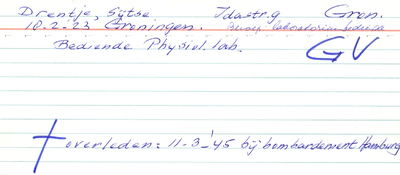 Drentje, Sytse Idastr. 9 Gron.
10-2-23 Groningen. Beroep laboratorium bediende
Bediende Physiol. lab. GV
overleden: 11-3-'45 bij bombardement Hamburg